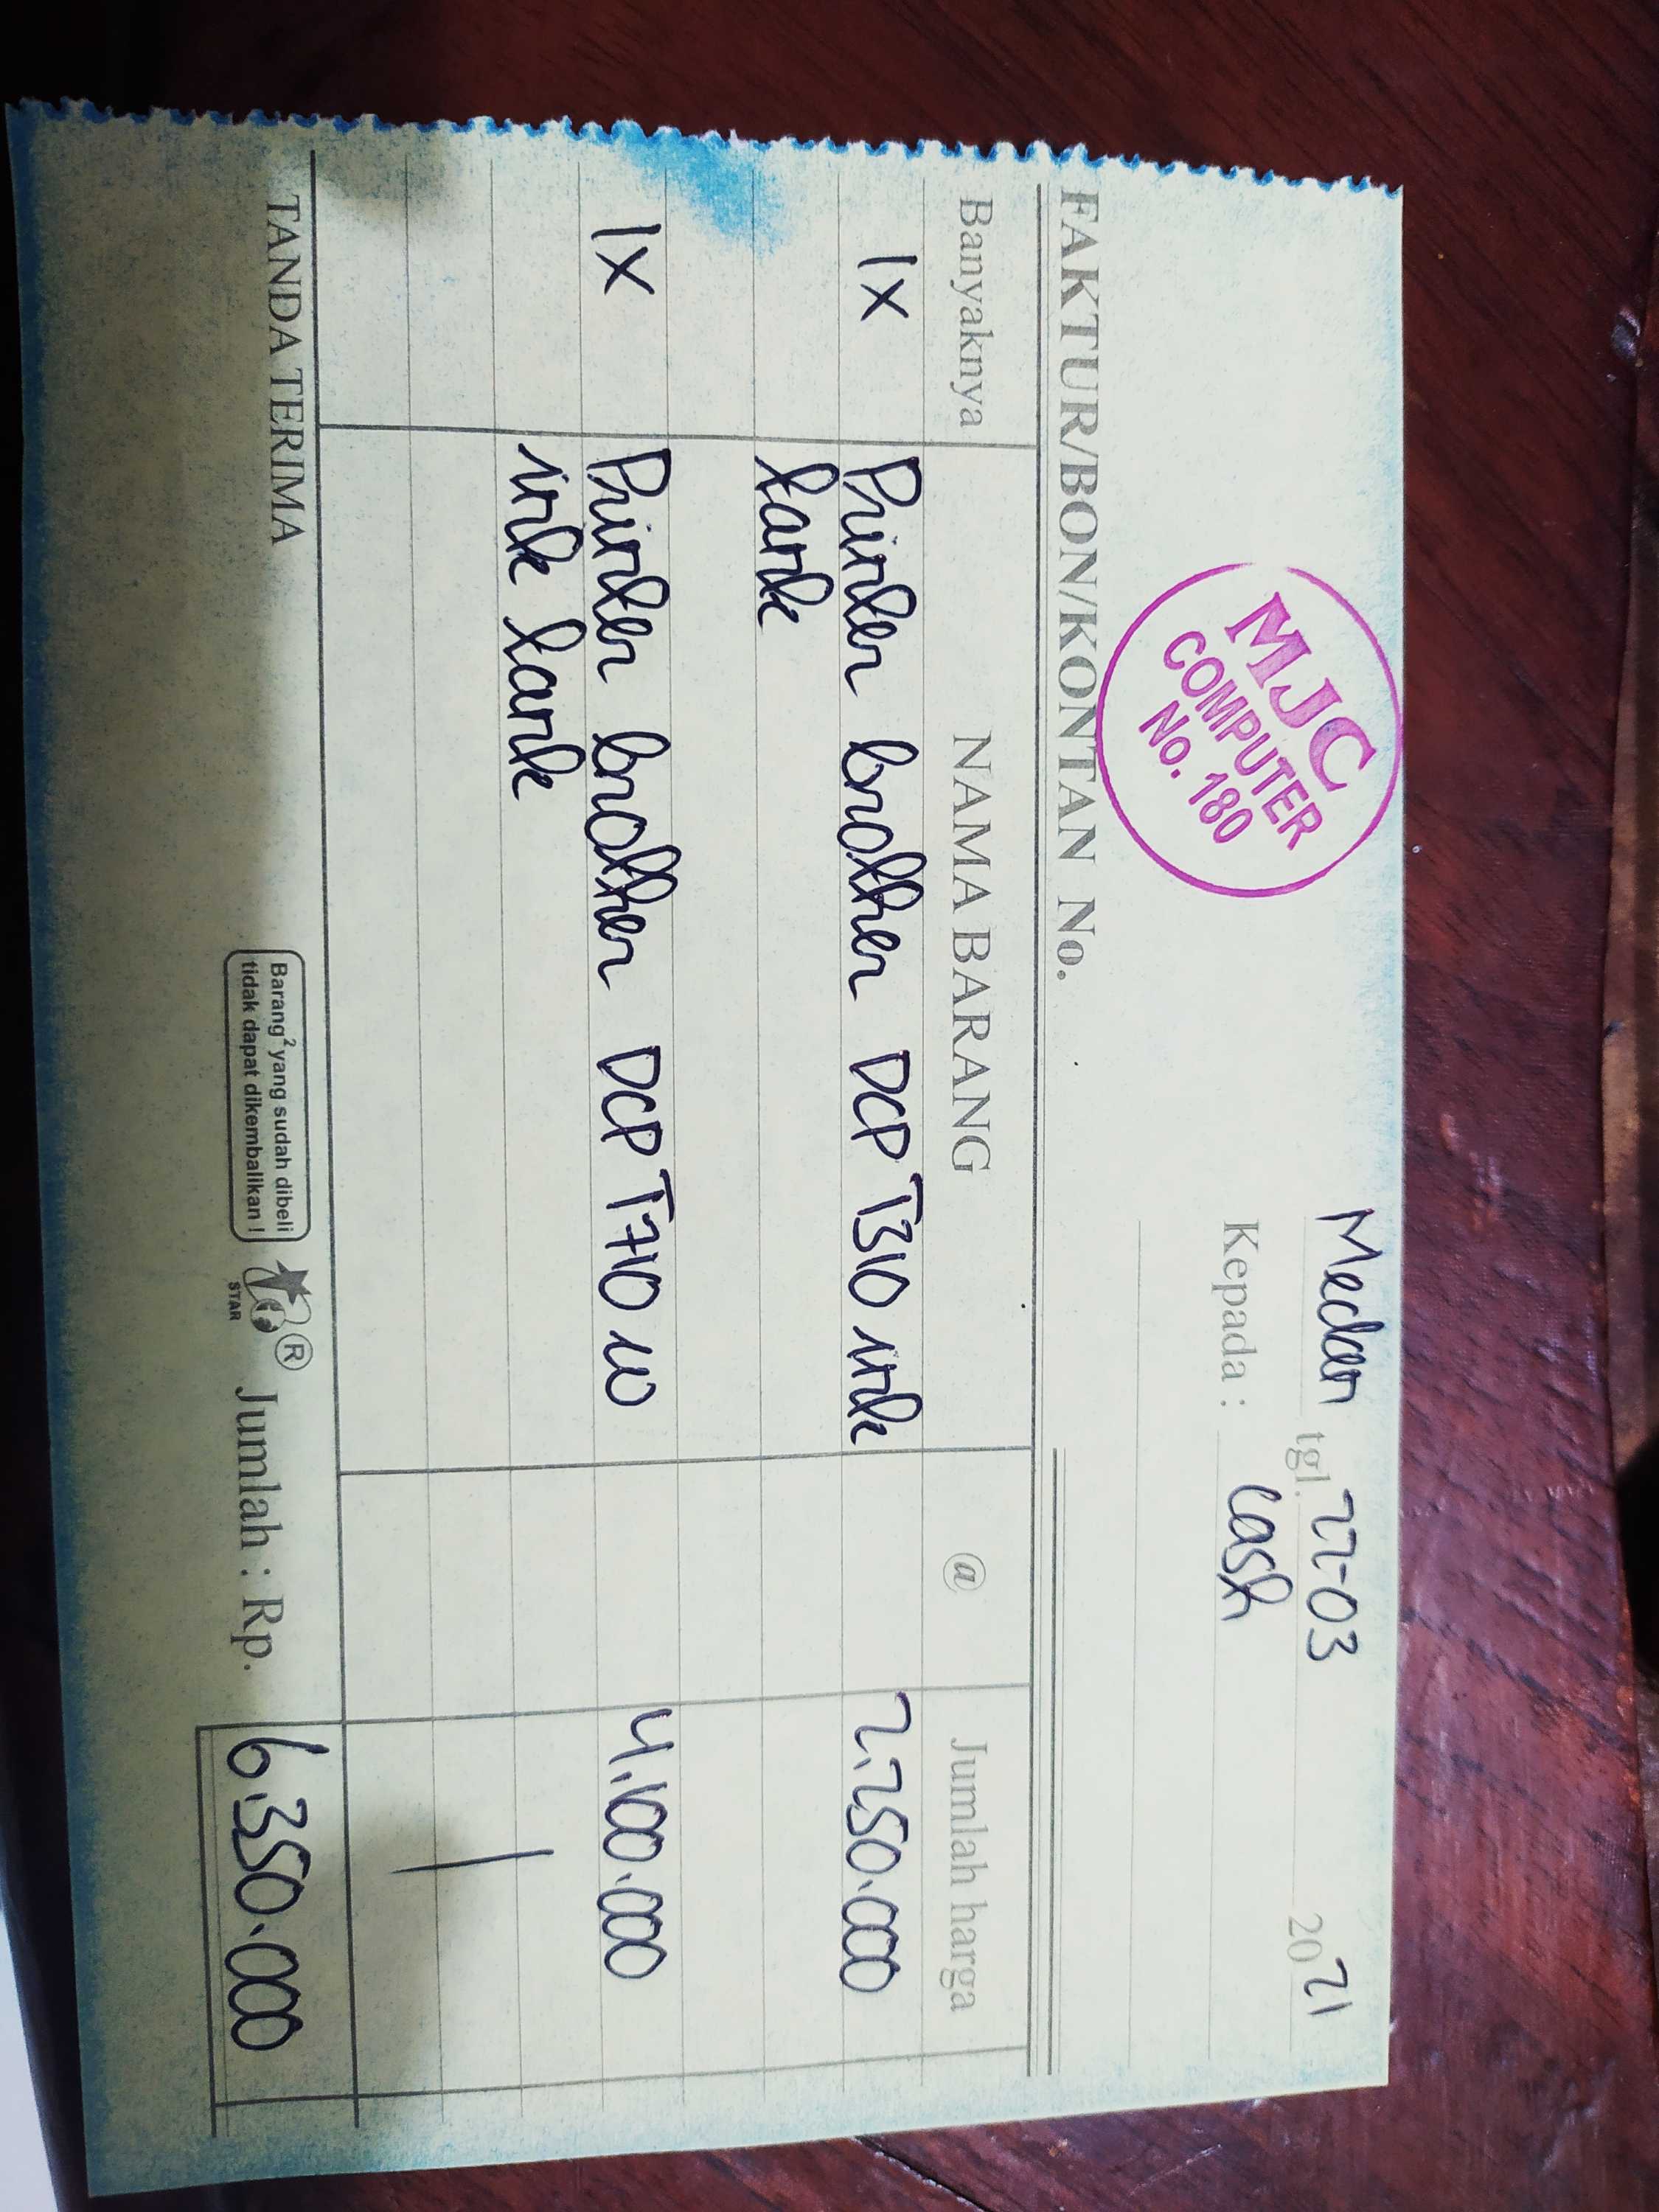 MJC
COMPUTER
No. 180
Medan tgl. 22-03 2021
Kepada : Cash
FAKTUR/BON/KONTAN No.
Banyaknya NAMA BARANG @ Jumlah harga
1x Printer brother DCP T310 ink 2.250.000
tank
1x Printer brother DCP T710 w 4.100.000
ink tank
TANDA TERIMA
Barang² yang sudah dibeli
tidak dapat dikembalikan !
STAR ®
Jumlah : Rp. 6.350.000